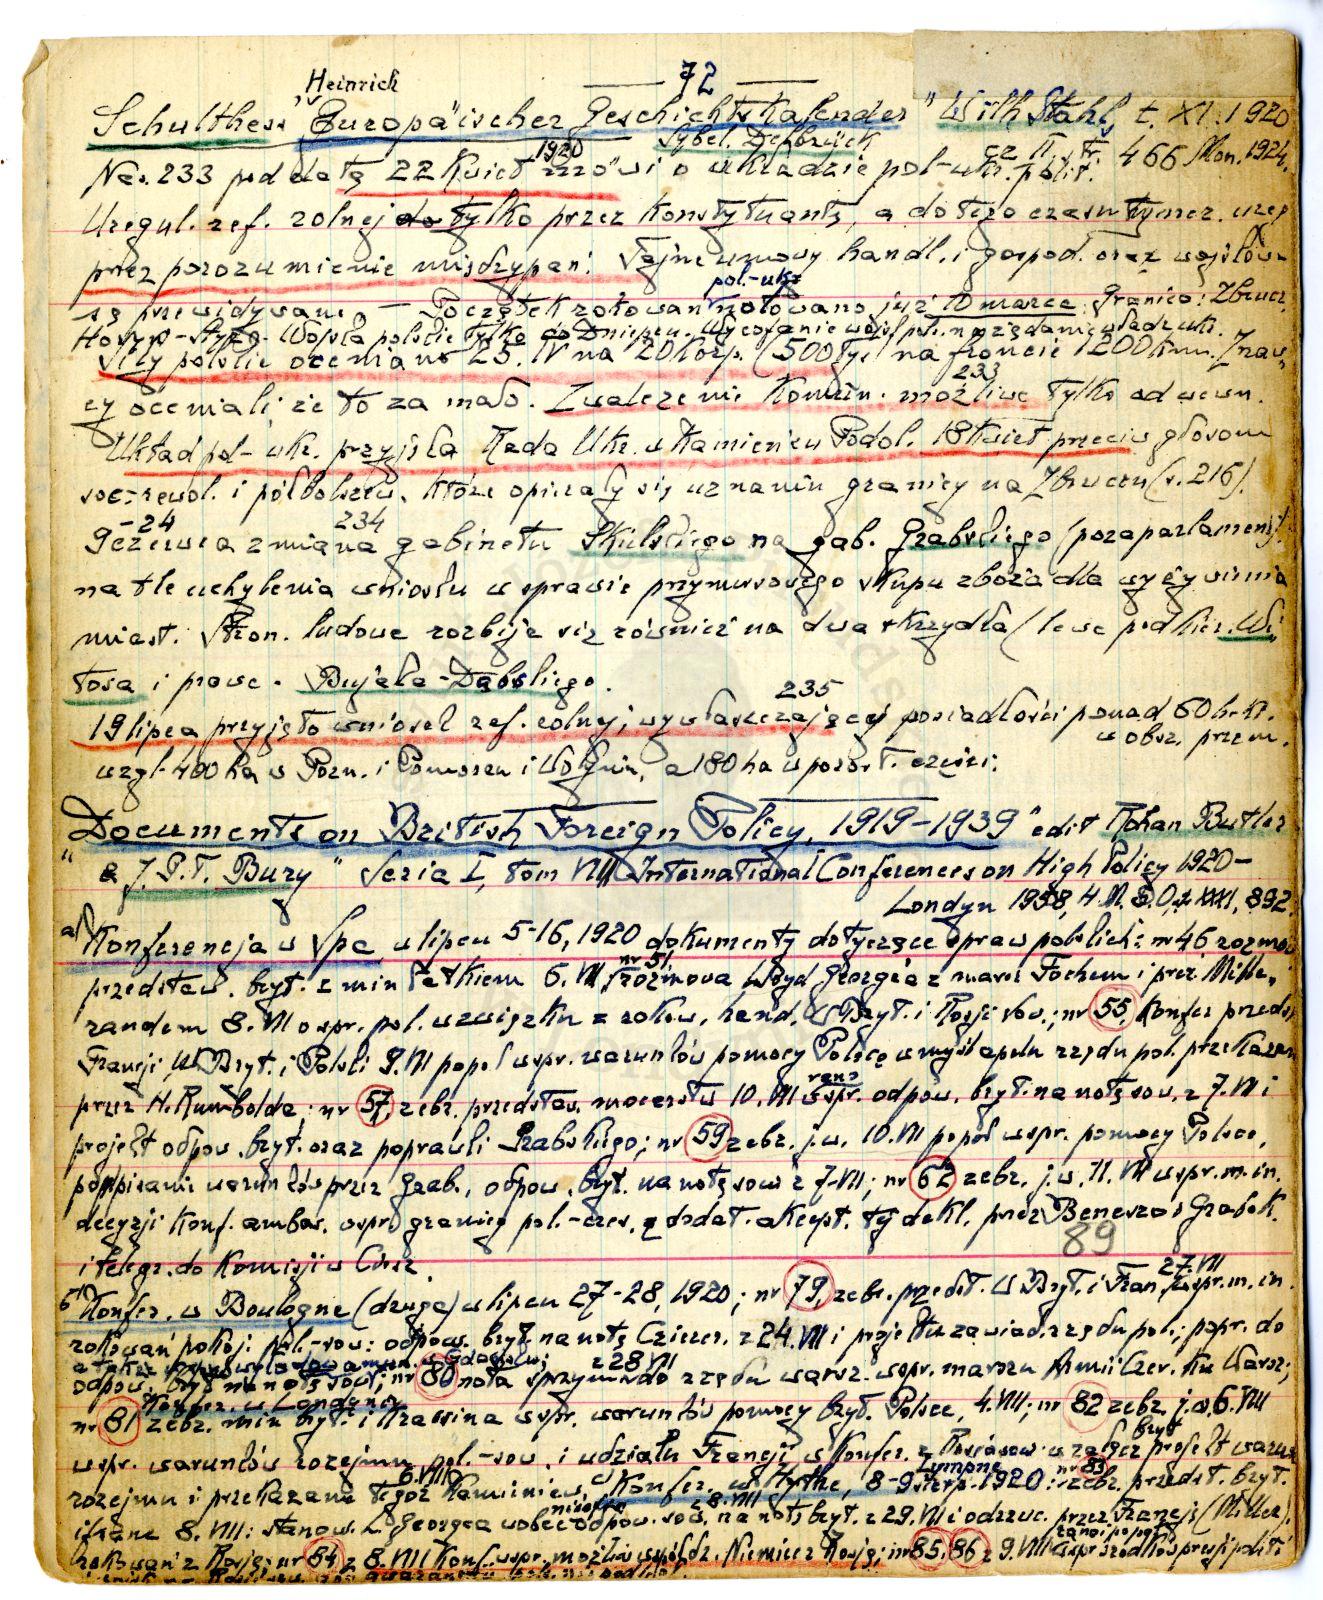 — 72 —
Heinrich
Schulthess "Europäischer Geschichtskalender" Wilh Stahl, t. XI. 1920
Sybel, Delbrück cz II, str. 466 Mon. 1924.
Na s. 233 pod datą 22 Kwiet 1920 mówi o układzie pol-ukr. polit.
Uregul. ref. rolnej tylko przez Konstytuantę, a do tego czasu tymcz. ureg
przez porozumienie międzypań. Tajne umowy handl. i gospod. oraz wojskow
są przewidywane. — Początek rokowań pol-ukr notowano już 10 marca. Granica: Zbrucz
Horyń-Styr. Wojska polskie tylko do Dniepru. Wycofanie wojsk pol. na żądanie władz ukr.
Siły polskie oceniano 25. IV na 20 Korp. (500 tys) na froncie 1200 km. Znaw-
cy oceniali że to za mało. Zwalczenie Komun. możliwe 233 tylko od wewn.
Układ pol-ukr. przyjęła Rada Ukr. w Kamieńcu Podol. 18 Kwiet przeciw głosom
soc-rewol. i półbolszew. które opierały się uznaniu granicy na Zbruczu (s. 216).
9-24 czerwca zmiana 234 gabinetu Skulskiego na gab. Grabskiego (pozaparlament)
na tle uchylenia wniosku w sprawie przymusowego skupu zboża dla wyżywienia
miast. Stron. ludowe rozbija się również na dwa skrzydła (lewe pod kier. Wi-
tosa i prawe - Bujaka-Dąbskiego.
19 lipca przyjęto wniosek ref. rolnej, wywłaszczającej 235 posiadłości ponad 60 ha
w obsz. przem.
wzgl. 400 ha w Pozn. i Pomorzu i Wołyniu, a 180 ha w pozost. części.
"Documents on British Foreign Policy, 1919-1939" edit Rohan Butler
& J.P.T. Bury" Seria I, tom VIII International Conferences on High Policy 1920 —
Londyn 1958, 892.
a) Konferencja w Spa w lipcu 5-16, 1920 dokumenty dotyczące spraw polskich: nr 46 rozmow
przedstaw. bryt. z min Patkiem 6. VII, nr 51 rozmowa Lloyd George'a z marsz Fochem i prez. Mille-
randem 8. VII o spr. pol. w związku z rokow. hand. W Bryt. i Rosji sow.; nr 55, Konfer przedst
Francji, W Bryt. i Polski 9. VII popoł w spr. warunków pomocy Polsce w myśl apelu rządu pol. przekazan
przez H. Rumbolda; nr 57, zebr. przedstaw. mocarstw 10. VII rano w spr. odpow. bryt. na notę sow. z 7. VII i
projekt odpow. bryt. oraz poprawki Grabskiego; nr 59 zebr. j.w. 10. VII popoł w spr. pomocy Polsce,
podpisami warunków przez Grab., odpow. bryt. na notę sow z 7. VII; nr 62 zebr. j.w. 11. VII w spr. m. in.
decyzji Konf. ambas. w spr. granicy pol.-czes. z dodat. akcept. tej dekl. przez Benesza i Grabsk.
89
i telegr. do Komisji w Ciesz.
b) Konfer. w Boulogne (druga) w lipcu 27-28, 1920; nr 79, zebr. przedst. W Bryt. i Fran. 27. VII w spr. m. in.
rokowań pokoj. pol.-sow: odpow. bryt. na notę Cziczer. z 24. VII i projektu zawiad. rządu pol.; popr. do
a także
odpow. bryt. na notę sow.; nr 80 nota z 28 VII do rządu warsz. w spr. marszu Armii Czer. ku Warsz;
Konfer. w Londynie
nr 81 zebr. min bryt. i Krassina w spr. warunków pomocy bryt. Polsce, 4. VIII; nr 82 zebr. j.w. 6. VIII
w spr. warunków rozejmu pol.-sow. i udziału Francji w Konfer. z Rosją sow. w załącz bryt projekt warun
rozejmu i przekazane tegoż 6. VIII Kamieniew, c) Konfer. w Hythe, Lympne 8-9 sierp. 1920: nr 83 zebr. przedst. bryt.
i franc 8. VIII: stanow. L. Georgea wobec odpow. sow. na notę bryt. z 29. VII i odrzuc. przez Francję (Miller).
rokowań z Rosją; nr 84 z 8. VIII Konf. w spr. możliw współdz. Niemiec z Rosją; nr 85, 86 z 9. VIII rano i popoł w spr środków presji polit